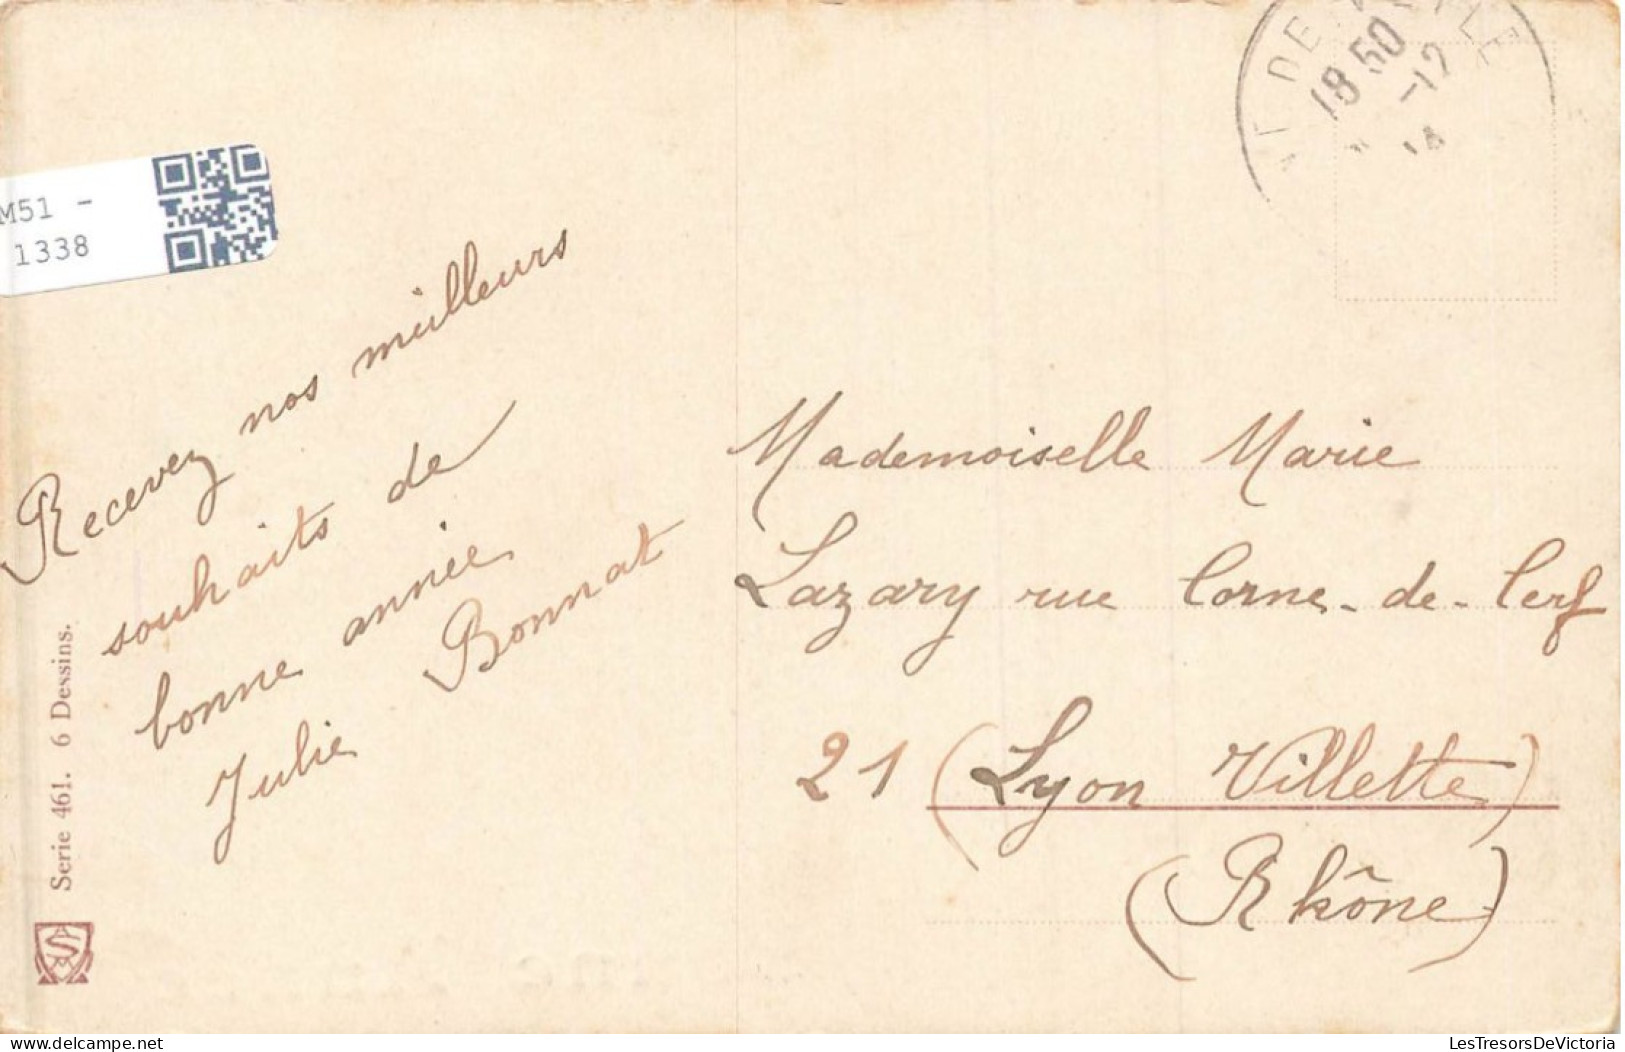 M51 -
1338
18 50
-12
14
Recevez nos meilleurs
souhaits de
bonne année
Julie Bonnat
Serie 461. 6 Dessins.
Mademoiselle Marie
Lazary rue Corne-de-Cerf
21 (Lyon Villette)
(Rhône)
www.delcampe.net
LesTresorsDeVictoria